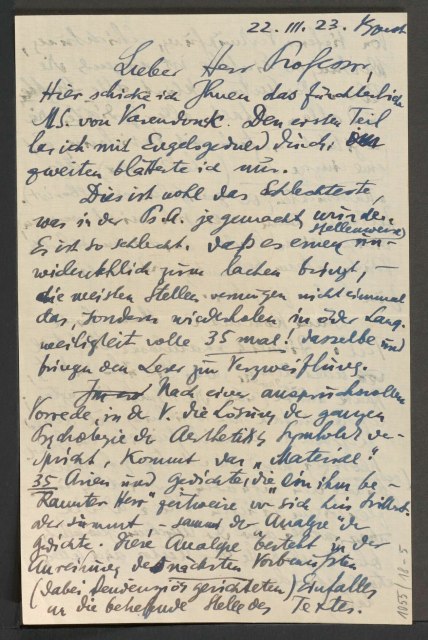 22. III. 23.
Lieber Herr Professor,
Hier schicke ich Ihnen das fürchterliche
M.S. von Varendonck. Den ersten Teil
las ich mit Engelsgeduld durch; im
zweiten blätterte ich nur.
Dies ist wohl das Schlechteste,
was in der Ps.A. je gemacht wurde.
stellenweise
Es ist so schlecht, daß es einen un-
widerstehlich zum lachen bringt, –
die meisten Stellen vermögen nicht einmal
das, sondern wiederholen in öder Lang-
weiligkeit volle 35 mal! dasselbe und
bringen den Leser zur Verzweiflung.
Nach einer anspruchsvollen
Vorrede, in der V. die Lösung der ganzen
Psychologie der Aesthetik & Symbolik ve-
spricht, kommt das „Material“
35 Arien und Gedichte, die „ein ihm be-
kannter Herr“ zeitweise vor sich hin trillert
oder summt – samt der „Analyse“ der
Gedichte. Diese „Analyse“ besteht in der
Anreihung der nächsten Vorbewußten
(dabei tendenziös gerichteten) Einfälle
an die betreffende Stelle des Textes.
1055/18-5